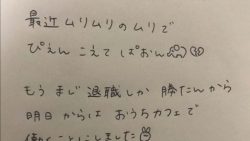 最近ムリムリのムリで
ぴえんこえてぱおん
もうまじ退職しか勝たんから
明日からはおうちカフェで
働くことにしました